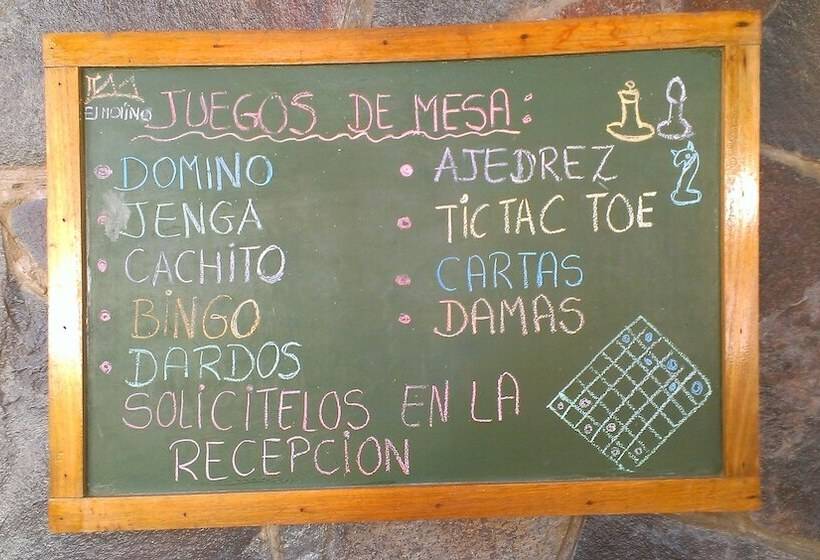 El MOliNO
JUEGOS DE MESA:
DOMINO
JENGA
CACHiTO
BiNGO
DARDOS
AJEDREZ
TiC TAC TOE
CARTAS
DAMAS
SOLiCiTELOS EN LA
RECEPCiON